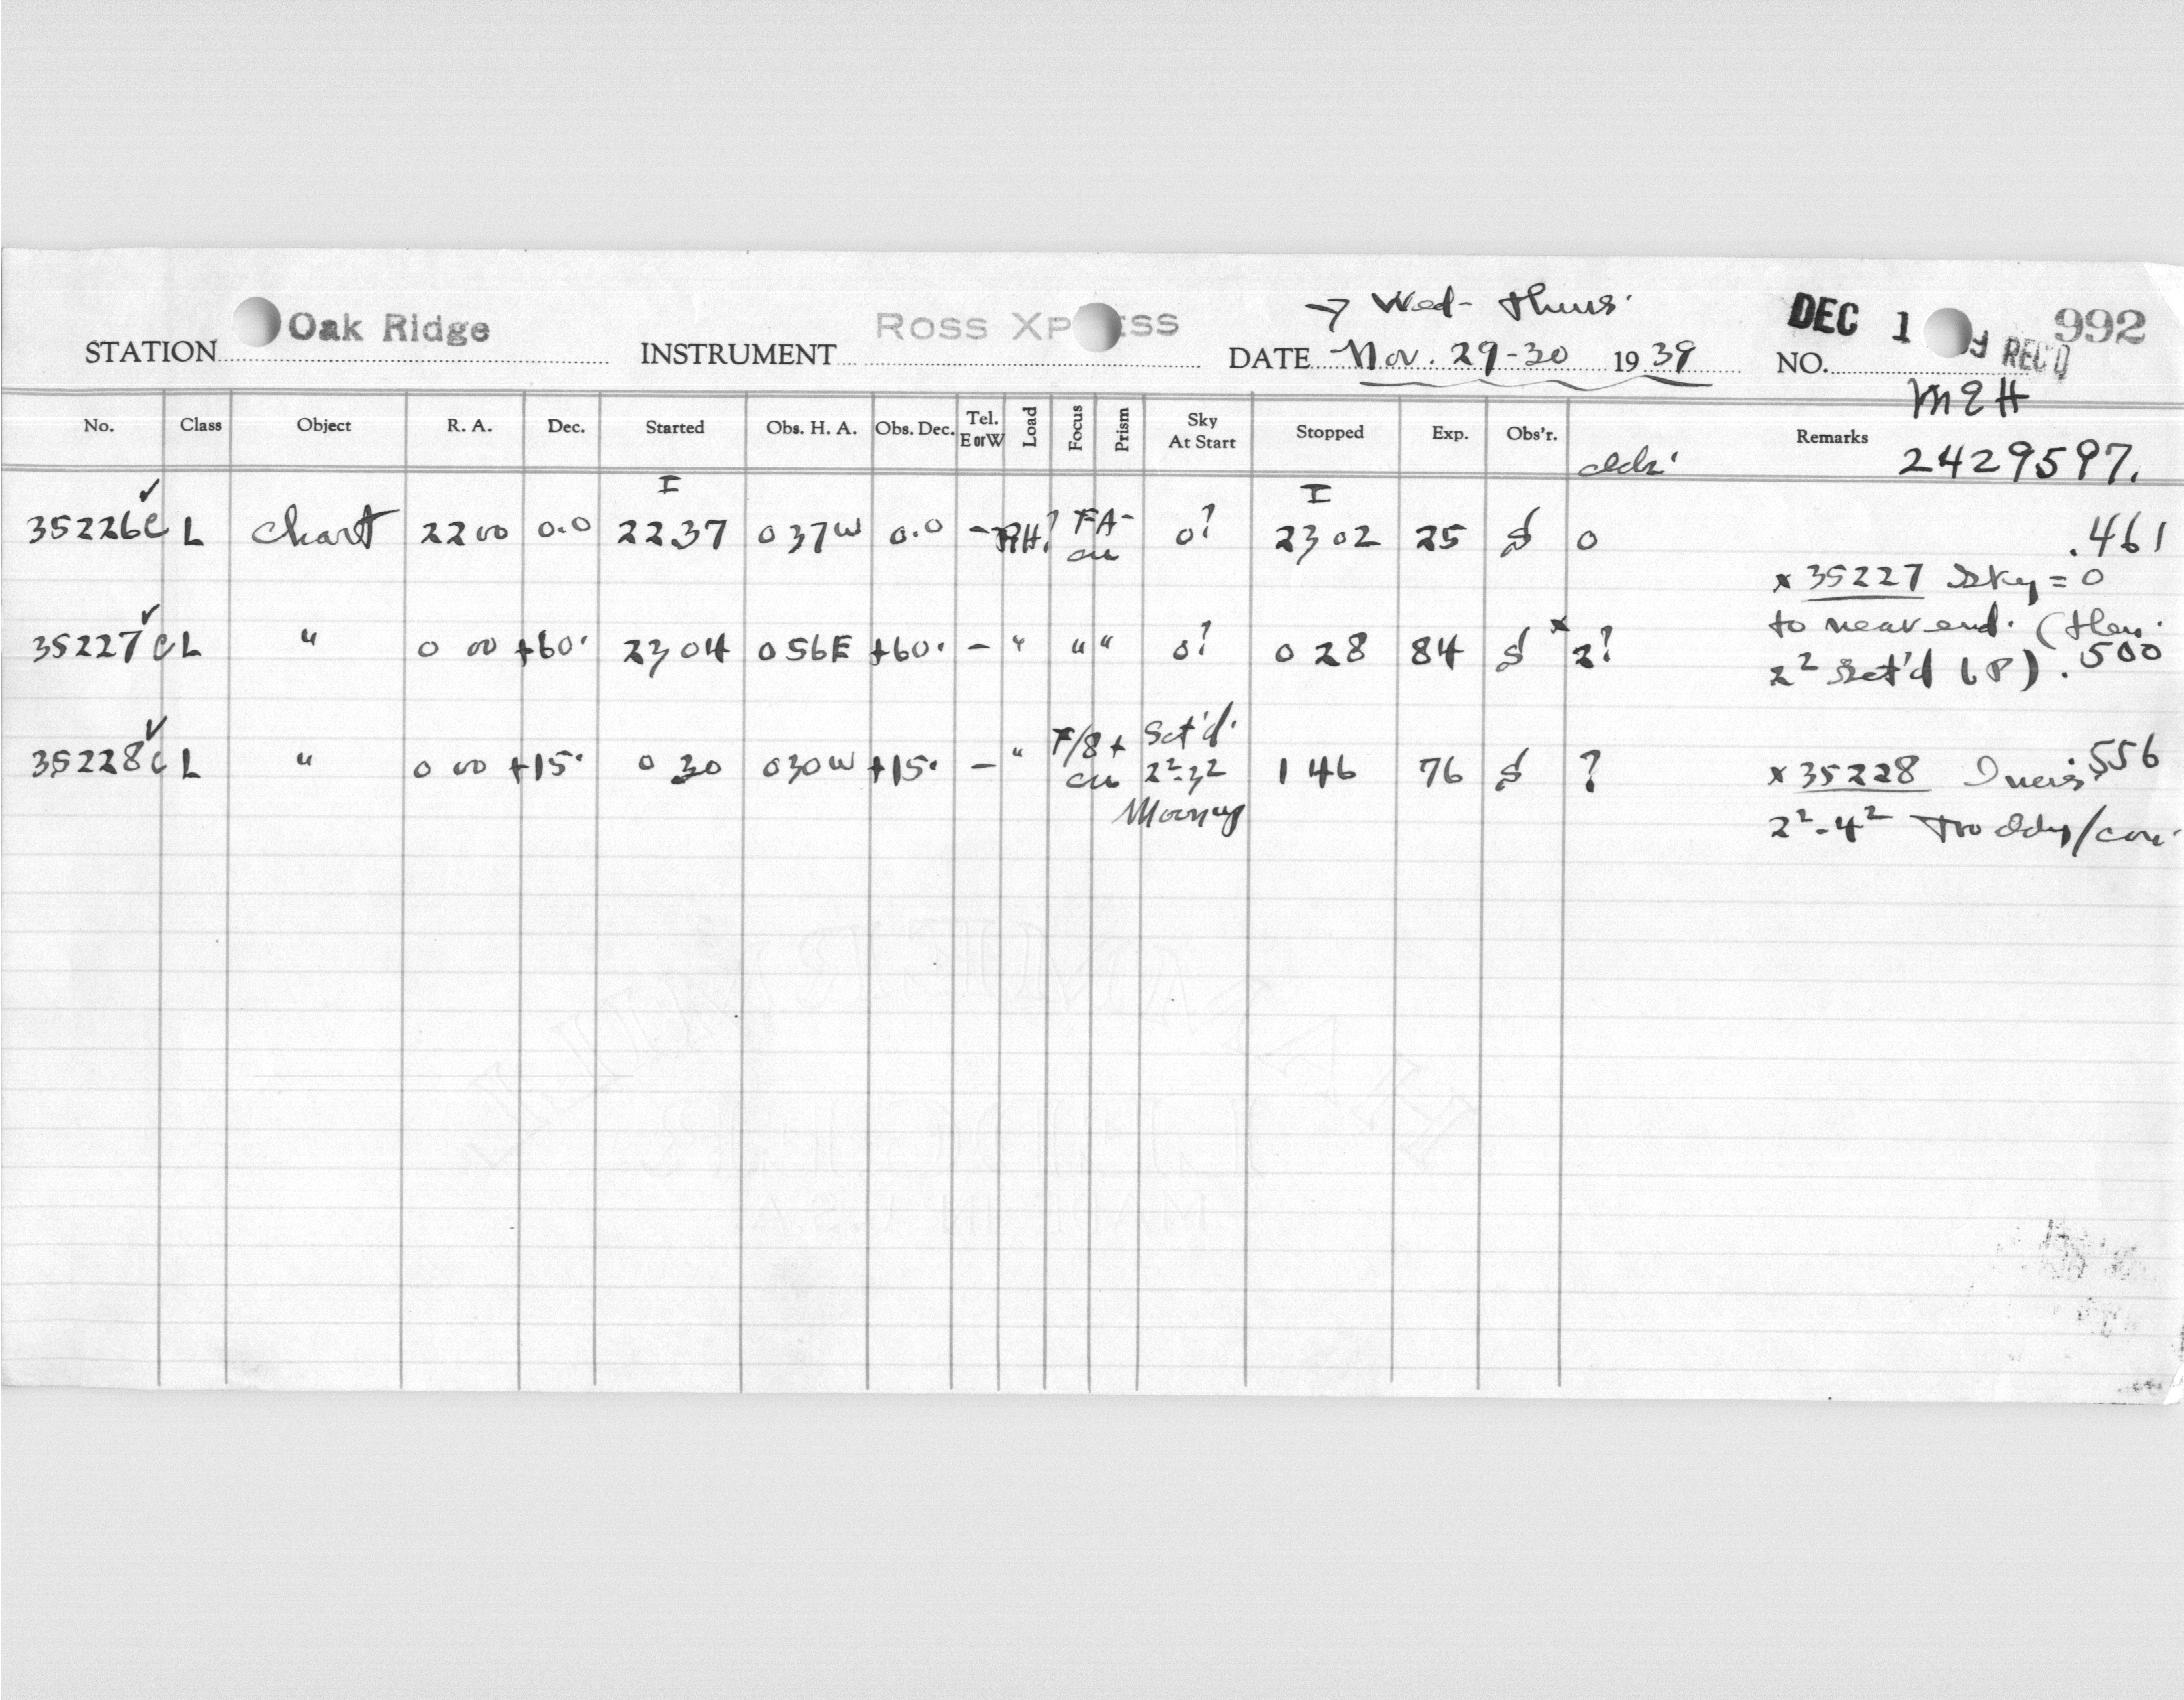 → Wed- Thurs.
STATION Oak Ridge INSTRUMENT Ross Xp ss DATE Nov. 29-30 1939 NO. 992
DEC 1 9 REC'D
M2H
No. Class Object R. A. Dec. Started Obs. H. A. Obs. Dec. Tel. E or W Load Focus Prism Sky At Start Stopped Exp. Obs'r. Remarks
2429597.
I I
35226c L Chart 22 00 0.0 22 37 0 37 W 0.0 - RH? FA- cu 0? 23 02 25 0 .461
x 35227 Sky = 0
35227c L " 0 00 +60. 23 04 0 56 E +60. - " " " 0? 0 28 84 x 2? to near end. (then
2² Sct'd (P). .500
35228c L " 0 00 +15. 0 30 0 30 W +15. - " F/8+ cu Sct'd. 2²-3² 1 46 76 ? x 35228 .556
Mooney 2²-4²